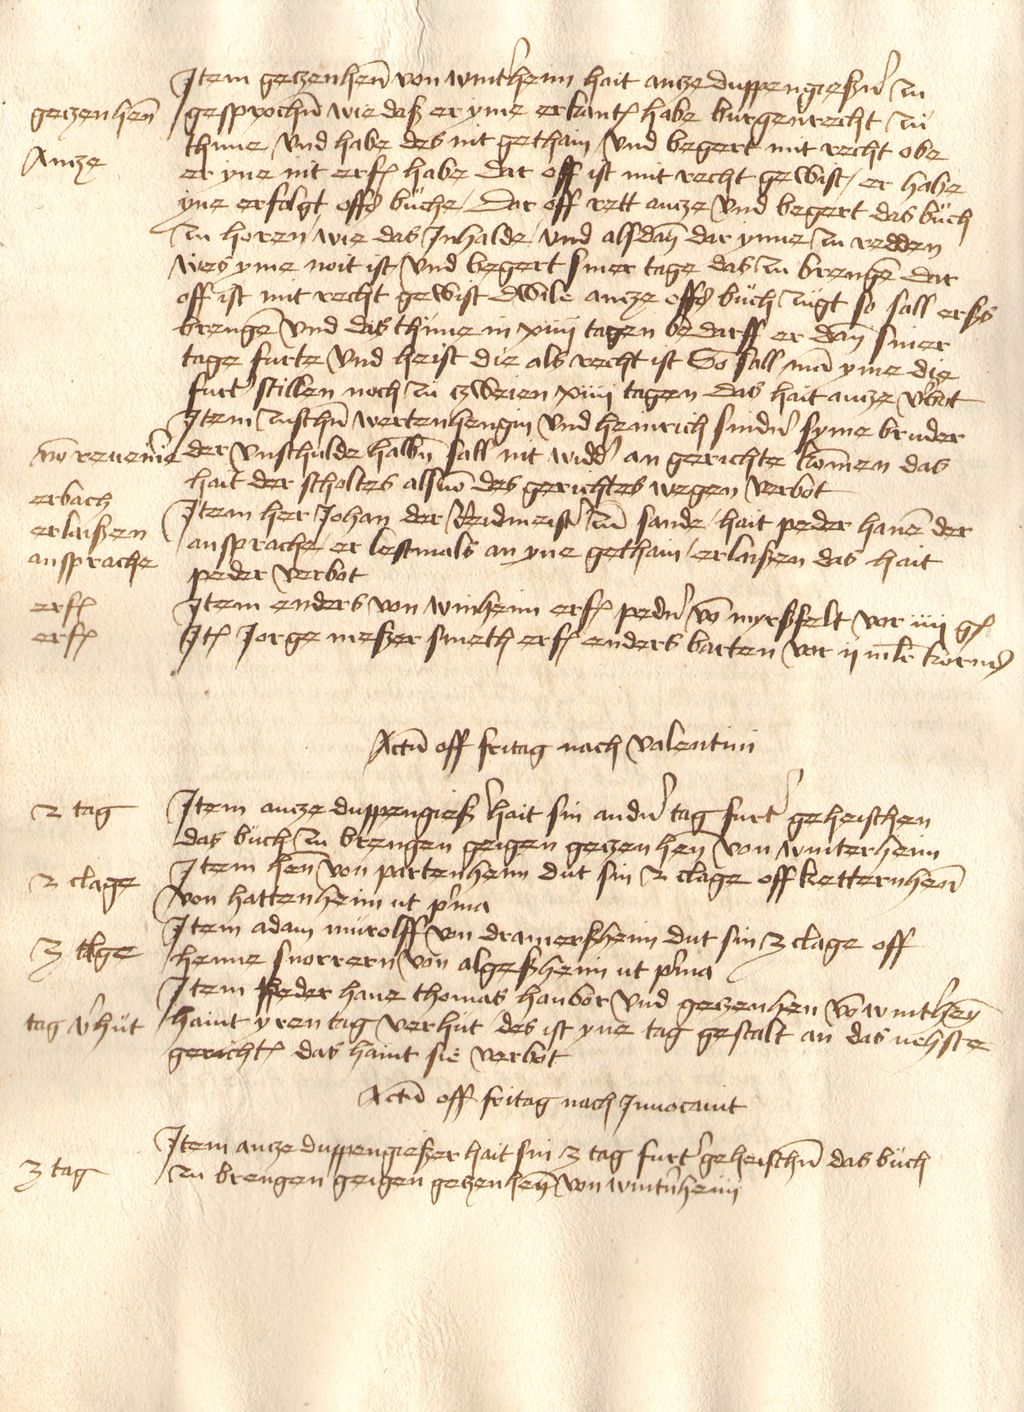 Item geczenhen von wintherim hait ancze duppengießer zu
geczenhen
gesprochen wie daß er yme erkant habe burgenrecht zu
Ancze
thune vnd habe des nit gethain vnd begert mit recht obe
er yne nit erf habe dar off ist mit recht gewist er habe
yne erfolgt off buche Dar off rett ancze vnd begert das buch
zu horen wie das Inhalde vnd alsdan dar ynne zu redden
wes yme noit ist vnd begert siner tage das zu brengen dar
off ist mit recht gewist dwile ancze off buch zugt so sall ers
brengen vnd das thune in xiiii tagen bedarff er dan siner
tage furte vnd heist die als recht ist So sall man yme die
furt stillen noch zu czweien xiiii tagen das hait ancze verbot
Item zuschen wertenhengin vnd heinrich snider syme bruder
der vnschulde halben sall nit widder an gerichte komen das
hait der scholtes also von des gerichtes wegen verbot
erbach
Item her Johan der Reidmeister zum sande hait peder hanen der
erlaißen
ansprache er lestmals an yne gethain erlaißen das hait
ansprache
peder verbot
erf
Item enders von winheim erf peder von myrßfelt vor iiii g
erf
It Jorge meßersmeth erf enders barten vor ii mlr korns
Actum off fritag nach valentini
2 tag
Item ancze duppengießer hait sin ander tag furter geheischen
das buch zu brengen geigen geczenhen von winterheim
2 clage
Item hen von partenheim dut sin 2 clage off ketternhenn
von hattenheim ut prima
Item adam murolff von dramerßheim dut sin 3 clage off
3 clage
henne snorrern von algeßheim ut prima
Item peder hane thomas hanbor vnd geczenhen von winthern
tag verhut
haint yren tag verhut des ist yne tag gestalt an das nehste
gericht das haint sie verbot
Actum off fritag nach Inuocauit
3 tag
Item ancze duppengießer hait sin 3 tag furter geheischen das buch
zu brengen geigen geczenhen von winternheim